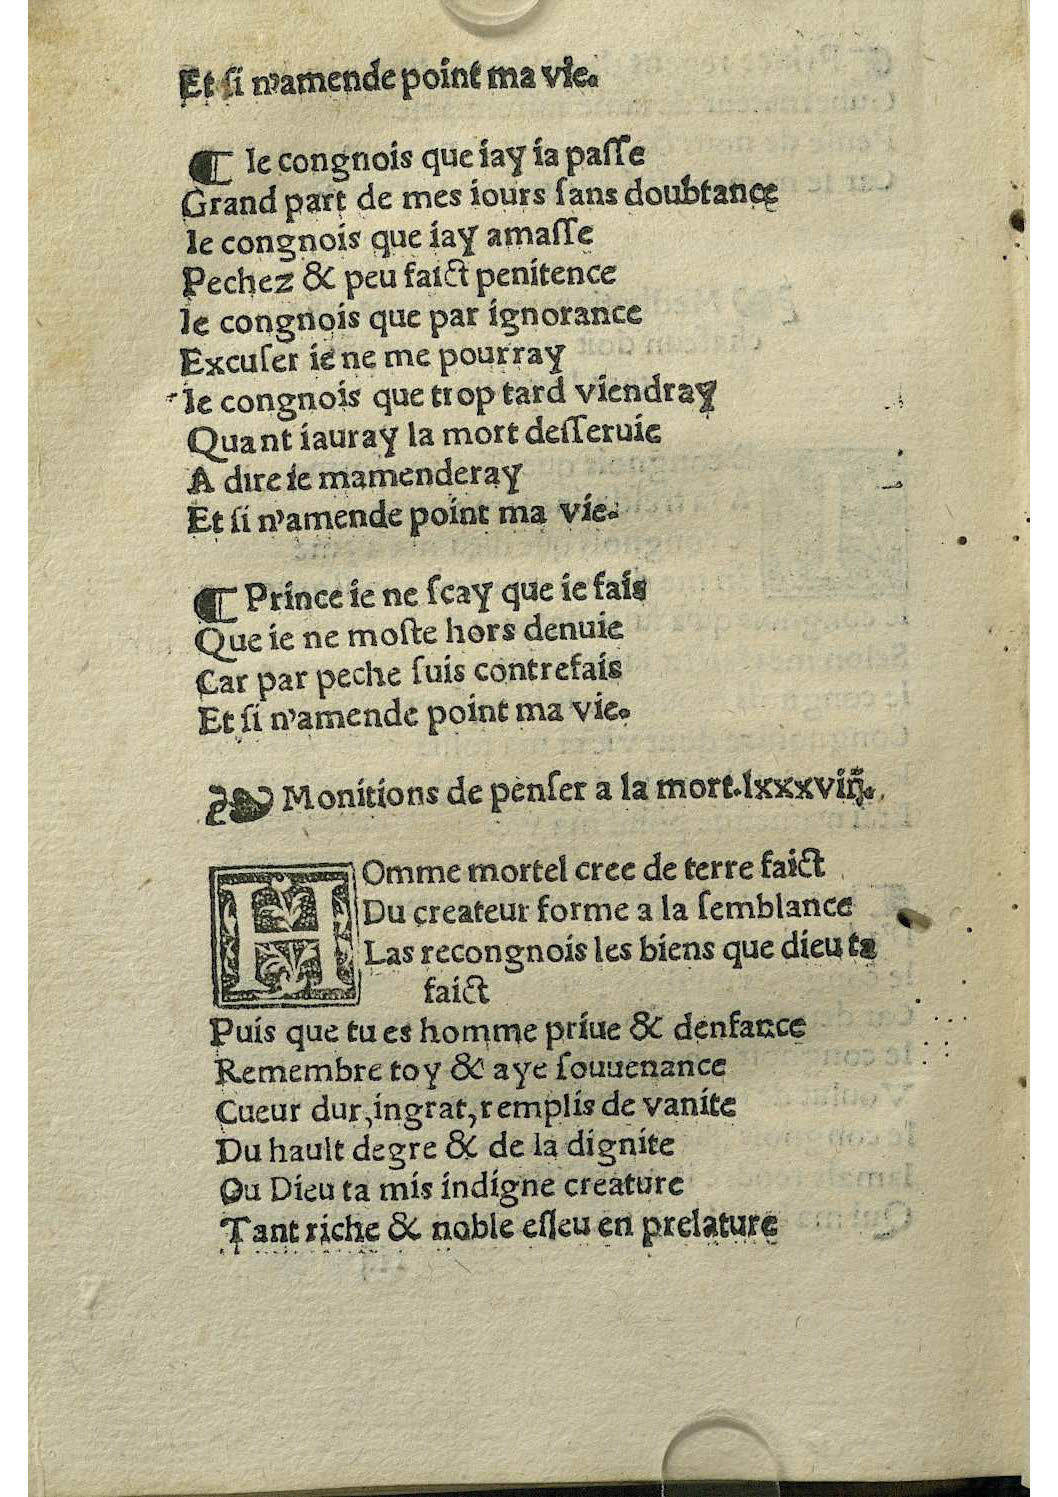 Et ſi n'amende point ma vie.
¶ Ie congnois que iay ia paſſe
Grand part de mes iours ſans doubtance
Ie congnois que iay amaſſe
Pechez & peu faict penitence
Ie congnois que par ignorance
Excuſer ie ne me pourray
Ie congnois que trop tard viendray
Quant iauray la mort deſſeruie
A dire ie mamenderay
Et ſi n'amende point ma vie.
¶ Prince ie ne ſcay que ie fais
Que ie ne moſte hors denuie
Car par peche ſuis contrefais
Et ſi n'amende point ma vie.
❧ Monitions de penſer a la mort. lxxxviij.
HOmme mortel cree de terre faict
Du createur forme a la ſemblance
Las recongnois les biens que dieu ta
faict
Puis que tu es homme priue & denfance
Remembre toy & aye ſouuenance
Cueur dur, ingrat, remplis de vanite
Du hault degre & de la dignite
Ou Dieu ta mis indigne creature
Tant riche & noble eſleu en prelature